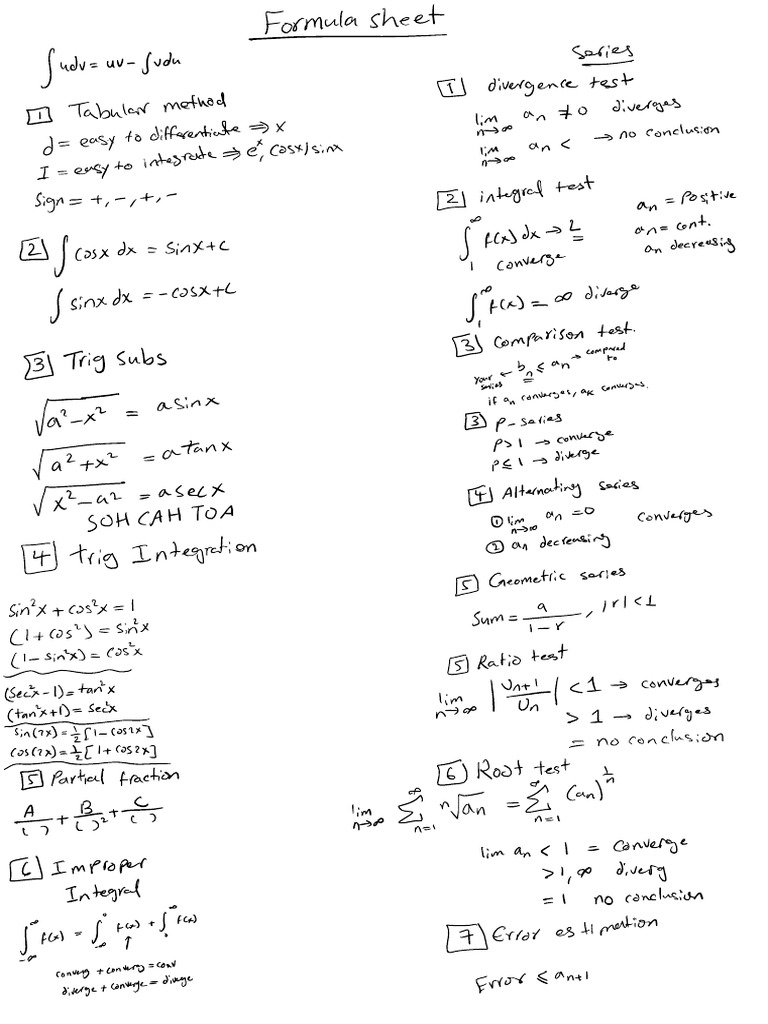 Formula sheet
∫udv = uv - ∫vdu
1 Tabular method
d = easy to differentiate ⇒ x
I = easy to integrate ⇒ eˣ, cosx/sinx
Sign = +, -, +, -
2 ∫cosx dx = sinx+c
∫sinx dx = -cosx+c
3 Trig subs
√(a²-x²) = a sinx
√(a²+x²) = a tanx
√(x²-a²) = a secx
SOH CAH TOA
4 trig Integration
sin²x + cos²x = 1
(1+cos²) = sin²x
(1-sin²x) = cos²x
(sec²x-1) = tan²x
(tan²x+1) = sec²x
sin(2x) = ½[1-cos2x]
cos(2x) = ½[1+cos2x]
5 Partial fraction
A/( ) + B/( )² + C/( )
6 Improper
Integral
∫_{-∞}^{∞} f(x) = ∫_{-∞}^{0} f(x) + ∫_{0}^{∞} f(x)
↑
converg + converg = conv
diverge + converge = diverge
Series
1 divergence test
lim n→∞ aₙ ≠ 0 diverges
lim n→∞ aₙ < → no conclusion
2 integral test
∫₁^∞ f(x)dx → L aₙ = Positive
converge aₙ = cont.
aₙ decreasing
∫₁^∞ f(x) = ∞ diverge
3 Comparison test.
your series ← bₙ ≤ aₙ → compared to
if aₙ converges, aₖ converges.
3 p-series
p>1 → converge
p≤1 → diverge
4 Alternating series
① lim n→∞ aₙ = 0 converges
② aₙ decreasing
5 Geometric series
Sum = a/(1-r), |r|<1
5 Ratio test
lim n→∞ |Uₙ₊₁/Uₙ| < 1 → converges
> 1 → diverges
= no conclusion
6 Root test
lim n→∞ ∑_{n=1}^{∞} ⁿ√aₙ = ∑_{n=1}^{∞} (aₙ)^{1/n}
lim aₙ < 1 = converge
>1, ∞ diverg
=1 no conclusion
7 Error estimation
Error ≤ aₙ₊₁